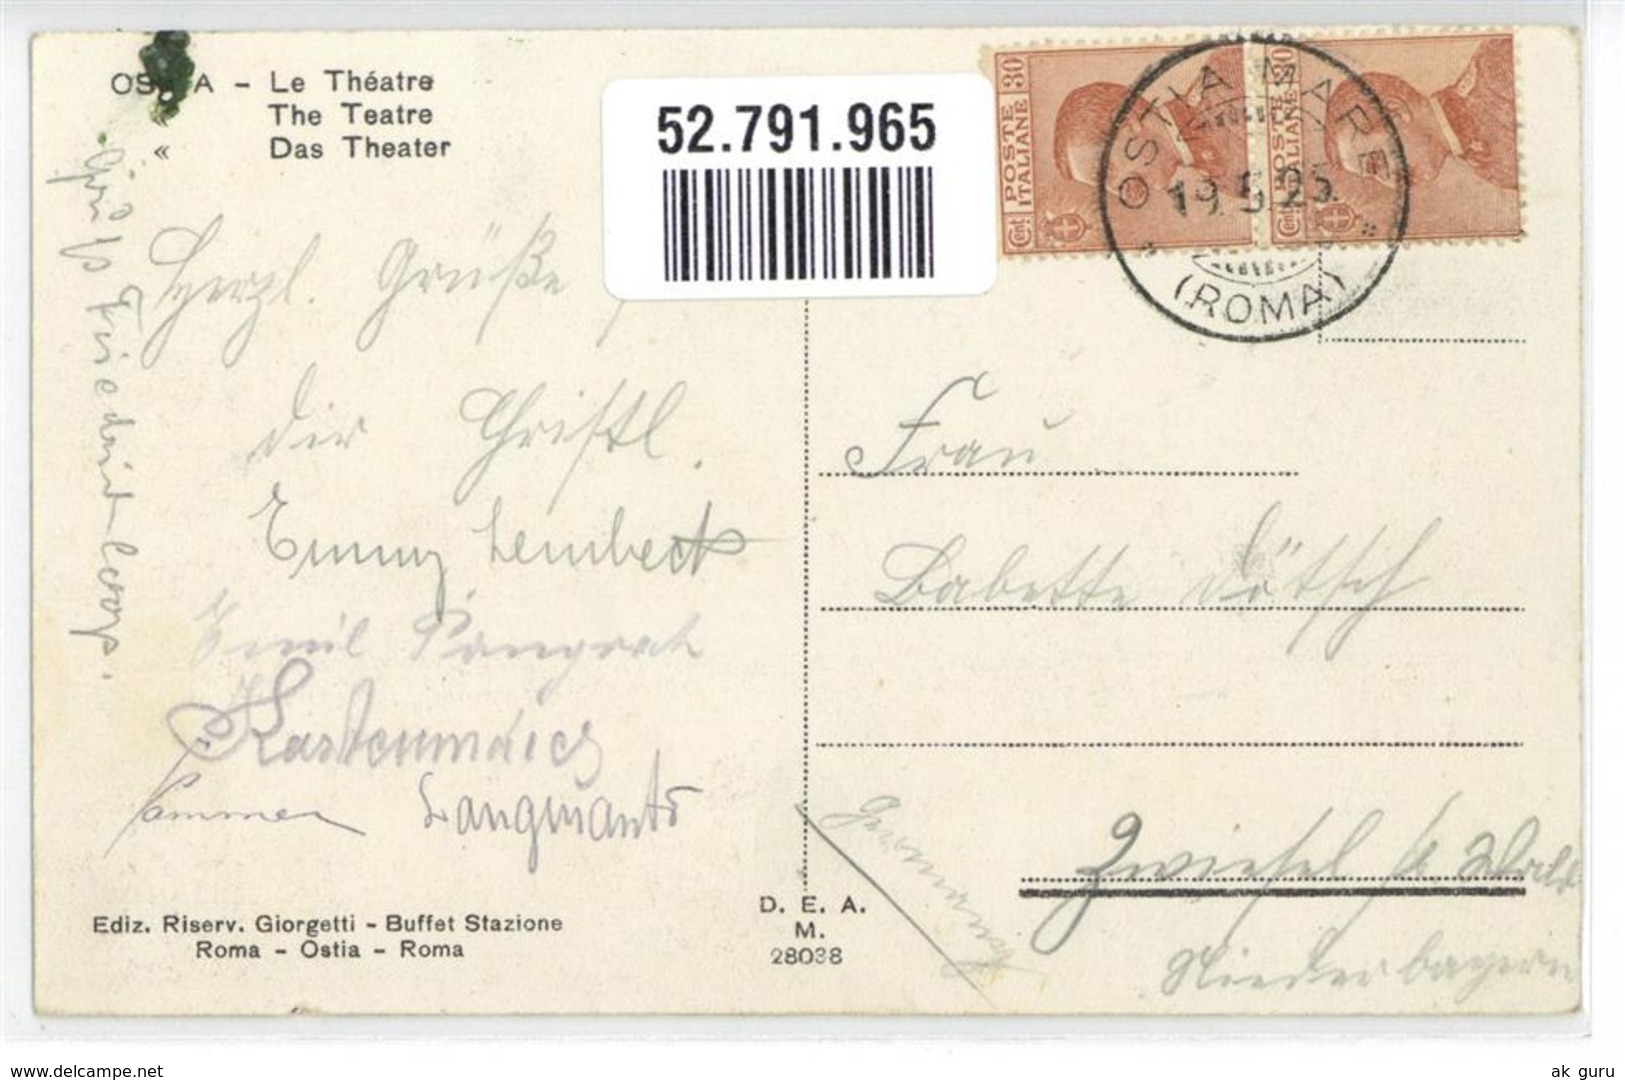 OSTIA - Le Théatre
The Teatre
« Das Theater
52.791.965
POSTE ITALIANE 30 Cent
POSTE ITALIANE 30 Cent
OSTIA MARE
19.5.25.
(ROMA)
Herzl. Grüße
dir Christl.
Emmy Lembeck
Emil Pangratz
Gruß
Frau
Babette Dötsch
Zwiesel b. Wald
Niederbayern
Germania
Ediz. Riserv. Giorgetti - Buffet Stazione
Roma - Ostia - Roma
D. E. A.
M.
28038
www.delcampe.net
ak guru